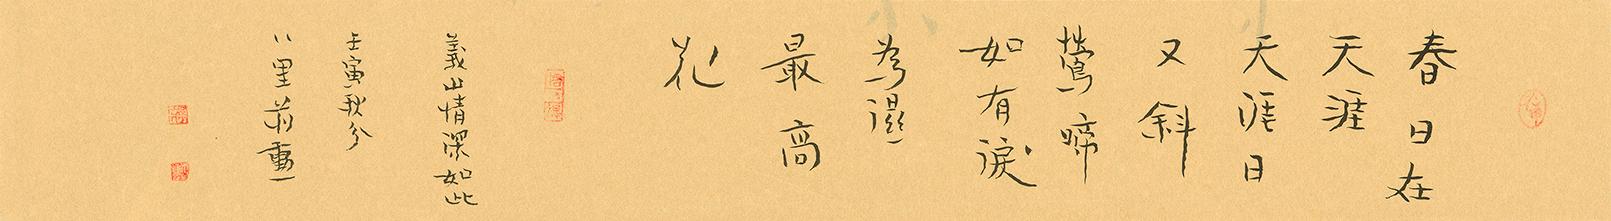 春日在
天涯
天涯日
又斜
鶯啼
如有淚
為濕
最高
花
義山情深如此
壬寅秋分
八里莊動